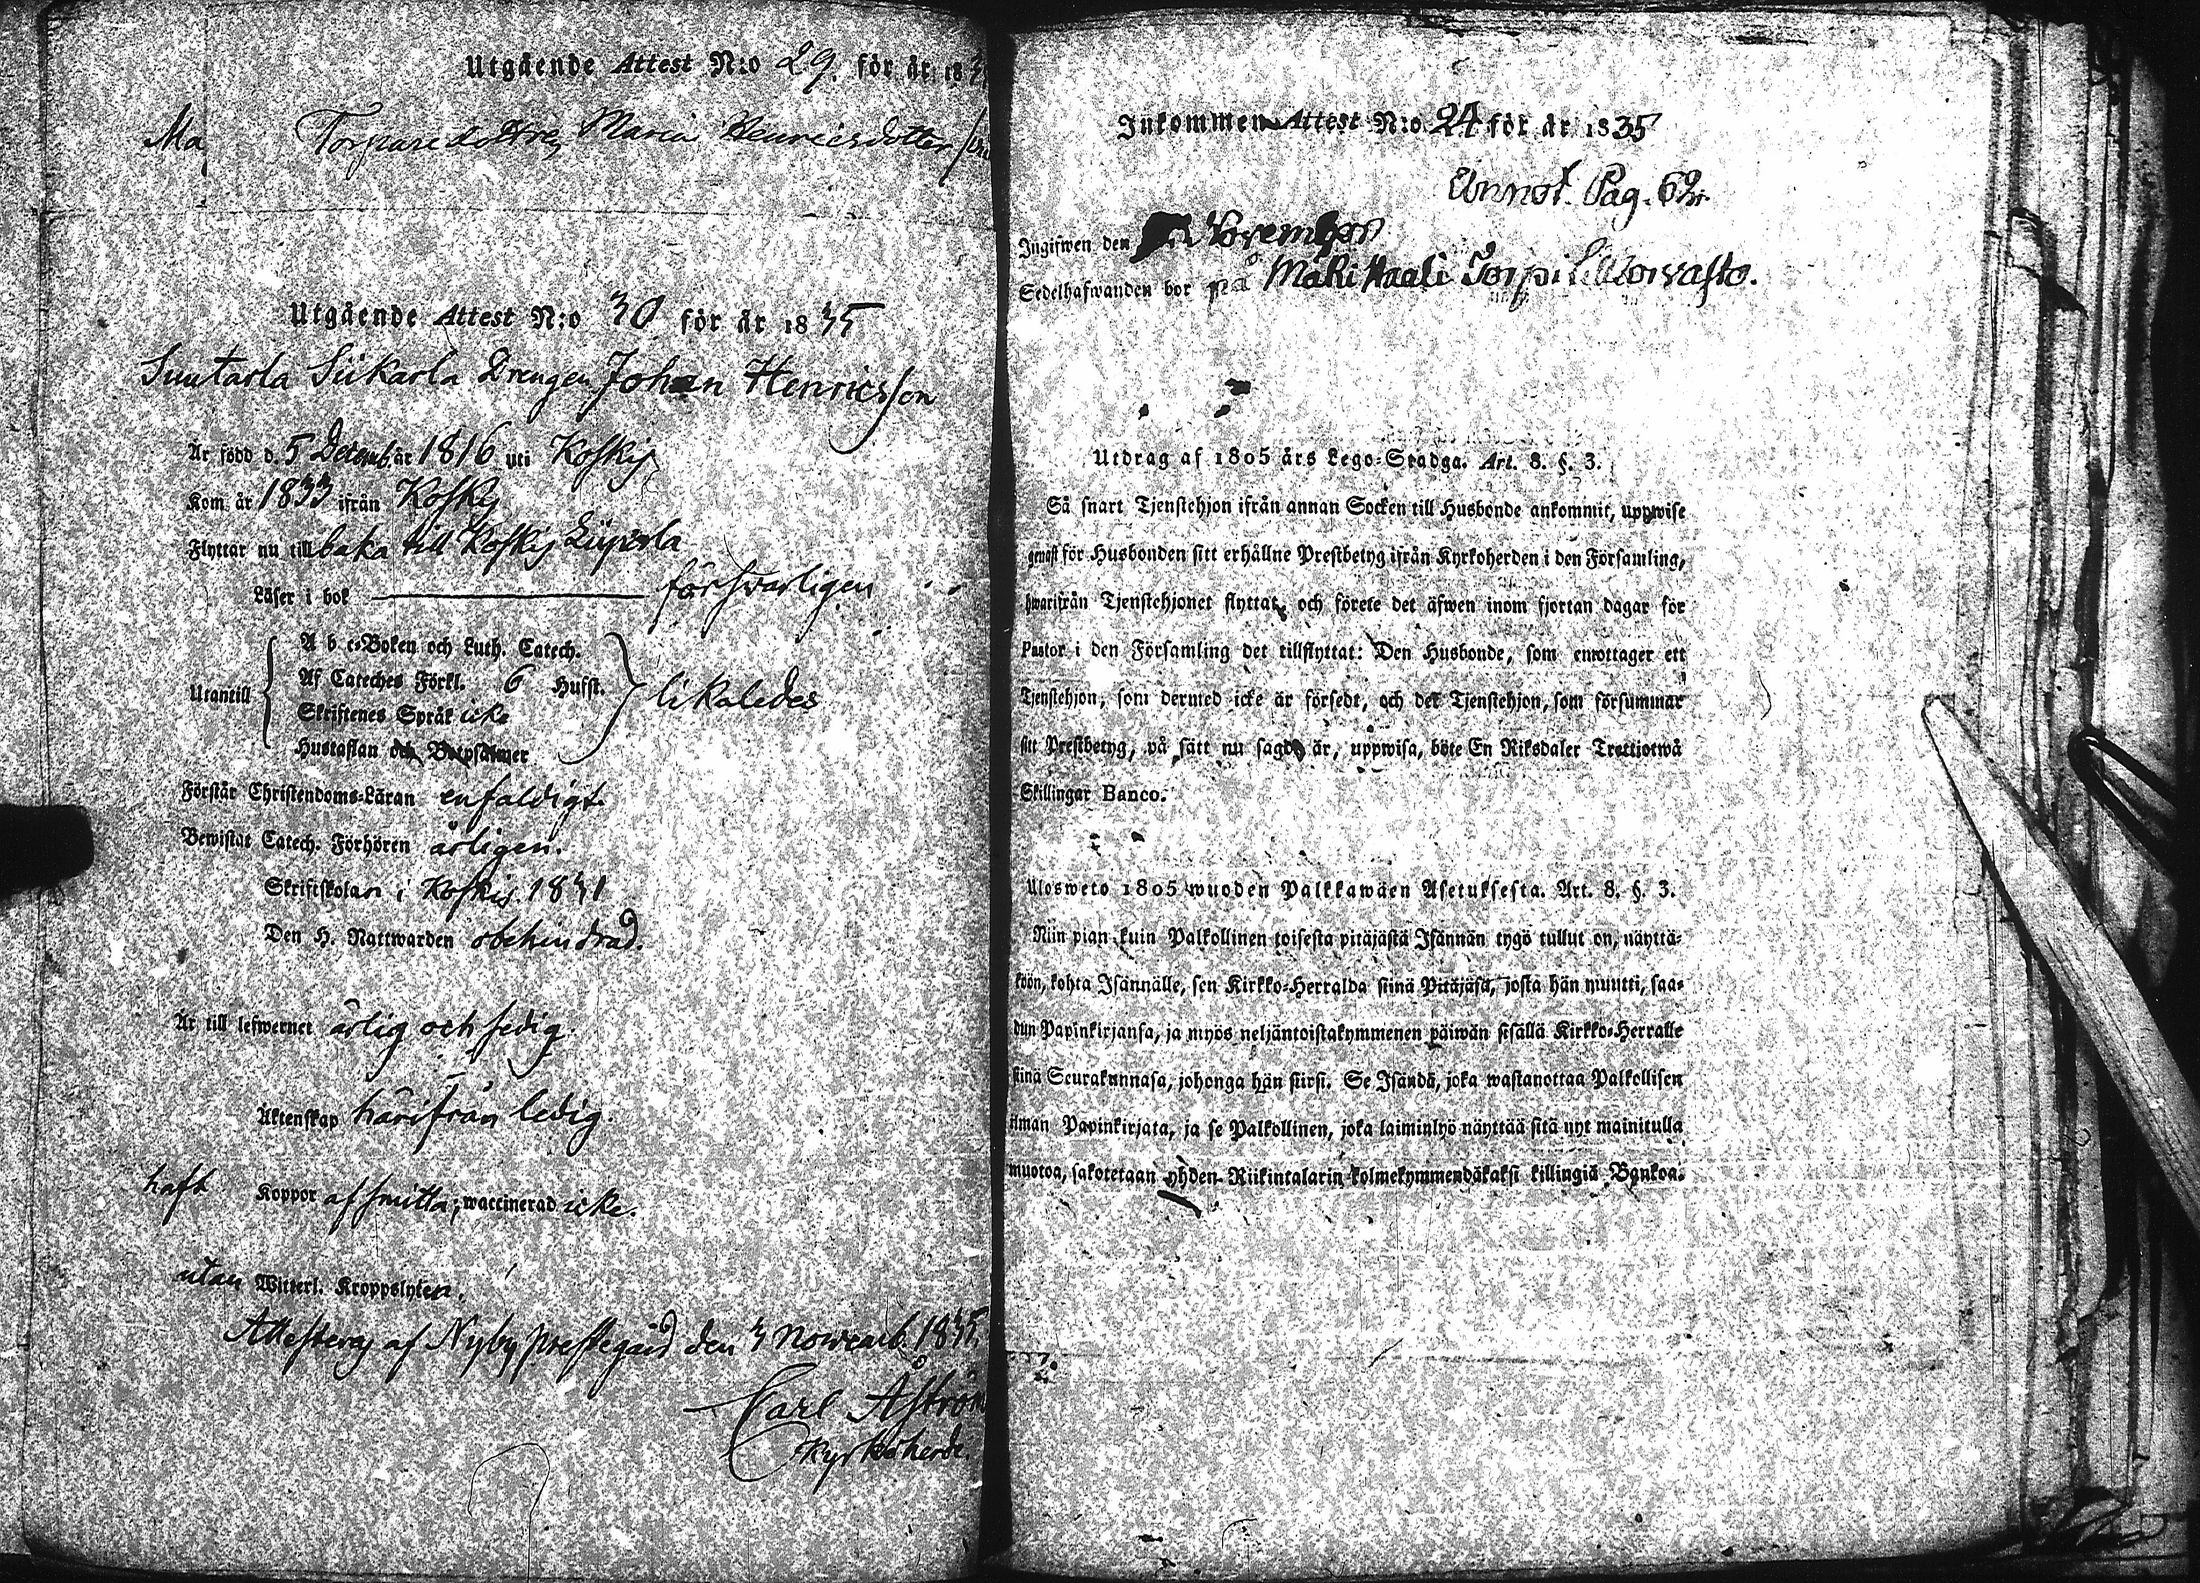 Utgående Attest N:o 29. för år 183
Ma Torparedottren Maria Henricsdotter
Utgående Attest N:o 30 för år 1835
Suutarla Sukarla Drengen Johan Henricsson
Är född d. 5 Decemb. år 1816 uti Koskis
Kom år 1833 ifrån Koskis
Flyttar nu tillbaka till Koskis Liiperla
Läser i bok försvarligen
Utantill
A b c-Boken och Luth. Catech.
Af Cateches Förkl. 6 Hufst.
Skriftenes Språk icke
Hustaflan och Botpsalmer
likaledes
Förstår Christendoms-Läran enfaldigt.
Bewistat Catech. Förhören årligen.
Skriftskolan i Koskis 1831
Den H. Nattwarden obehindrad.
Är till lefwernet ärlig och sedig.
Äktenskap härifrån ledig.
haft Koppor af smitta; waccinerad icke.
utan Witterl. Kroppslyten.
Attesteras af Nyby prestegård den 3 Novemb. 1835.
Carl Åström
Kyrkoherde.
Inkommen Attest N:o 24 för år 1835
Annot. Pag. 62.
Ingifwen den November
Sedelhafwanden bor på Mäki Haali Torp i
Utdrag af 1805 års Lego-Stadga. Art. 8. §. 3.
Så snart Tjenstehjon ifrån annan Socken till Husbonde ankommit, uppwise
genast för Husbonden sitt erhållne Prestbetyg ifrån Kyrkoherden i den Församling,
hwarifrån Tjenstehjonet flyttat, och förete det äfwen inom fjortan dagar för
Pastor i den Församling det tillflyttat: Den Husbonde, som emottager ett
Tjenstehjon, som dermed icke är försedt, och det Tjenstehjon, som försummar
sitt Prestbetyg, på sätt nu sagdt är, uppwisa, böte En Riksdaler Trettiotwå
Skillingar Banco.
Ulosweto 1805 wuoden Palkkawäen Asetuksesta. Art. 8. §. 3.
Niin pian kuin Palkollinen toisesta pitäjästä Isännän tygö tullut on, näyttä-
köön, kohta Isännälle, sen Kirkko-Herralda siinä Pitäjäsä, josta hän muutti, saa-
dun Papinkirjansa, ja myös neljäntoistakymmenen päiwän sisällä Kirkko-Herralle
siinä Seurakunnasa, johonga hän siirsi. Se Isändä, joka wastanottaa Palkollisen
ilman Papinkirjata, ja se Palkollinen, joka laiminlyö näyttää sitä nyt mainitulla
muotoa, sakotetaan yhden Riikintalarin kolmekymmendäkaksi killingiä Bankoa.